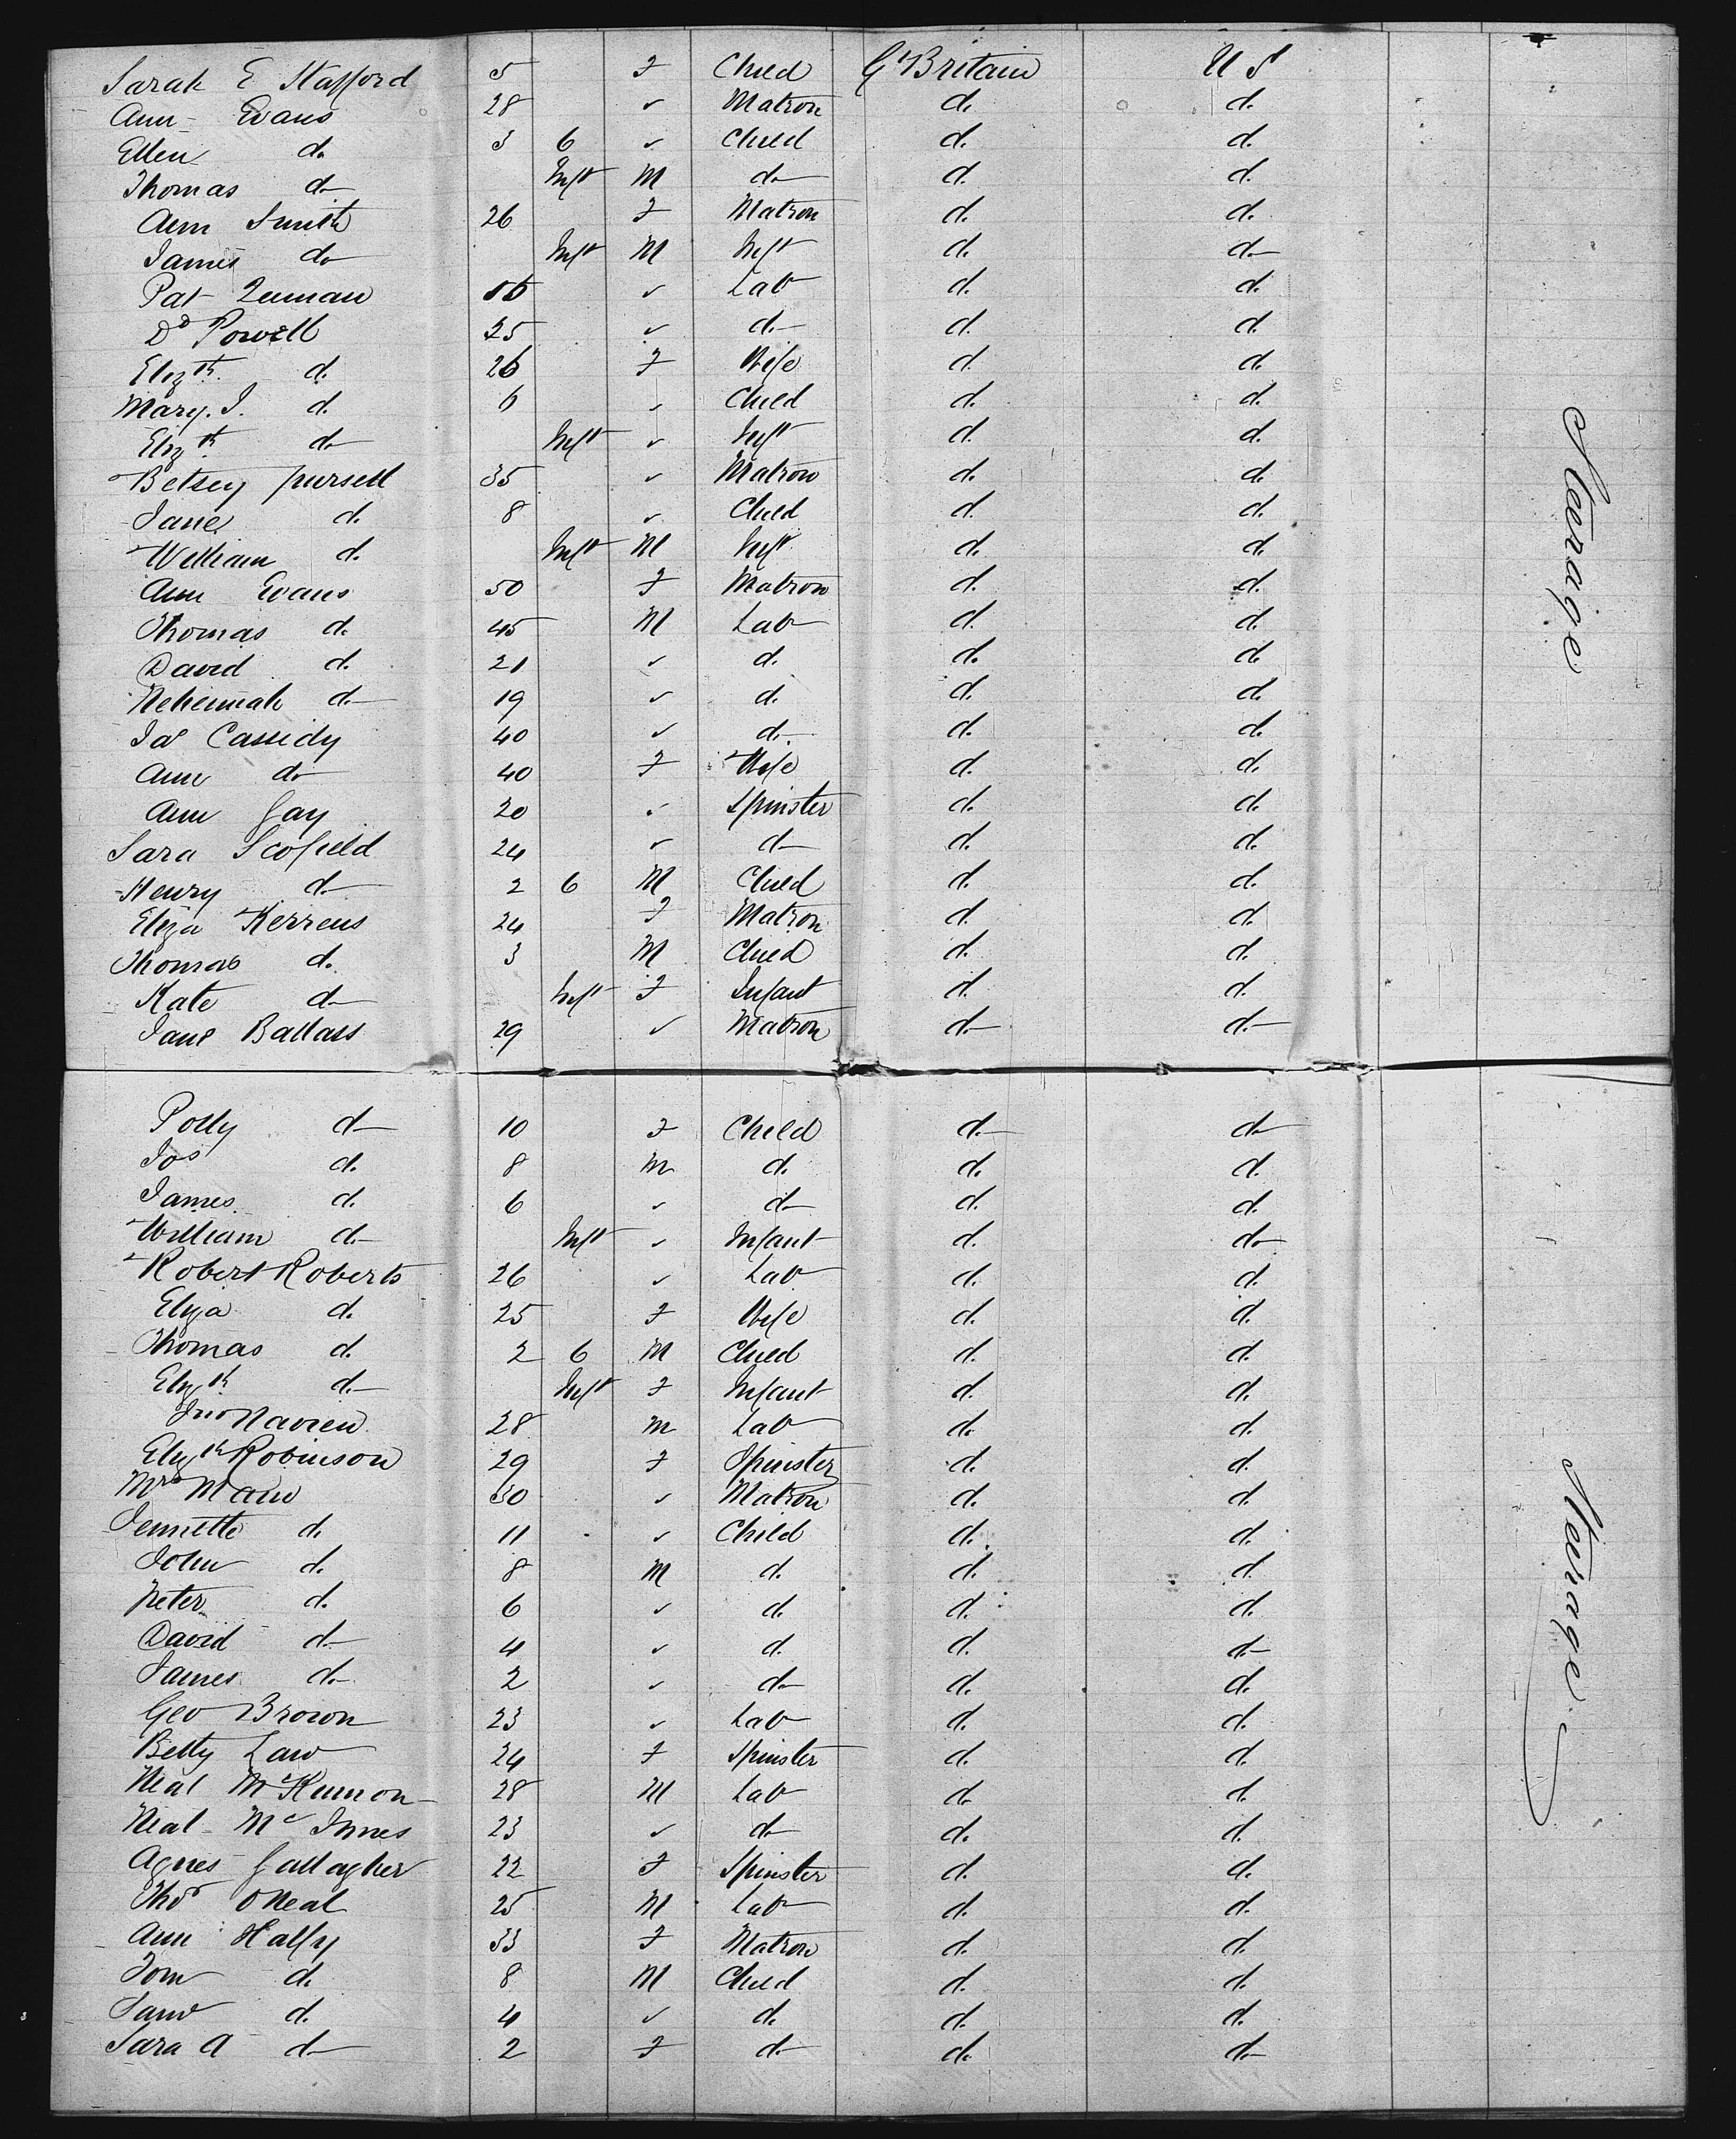 Sarah E Stafford 5 F Child Gt Britain U S
Ann Evans 28 " Matron do do
Ellen do 3 6 " Child do do
Thomas do Inft M do do do
Ann Smith 26 F Matron do do
James do Inft M Inft do do
Pat " Lab do do
Dd Powell 25 " do do do
Elizth do 26 F Wife do do
Mary J. do 6 " Child do do
Elizth do Inft " Inft do do
Betsey Pursell 35 " Matron do do
Jane do 8 " Child do do
William do Inft M Inft do do
Ann Evans 50 F Matron do do
Thomas do 45 M Lab do do
David do 21 " do do do
Nehemiah do 19 " do do do
Jas Cassidy 40 " do do do
Ann do 40 F Wife do do
Ann Gay 20 " Spinster do do
Sara Scofield 24 " do do do
Henry do 2 6 M Child do do
Eliza Kerrens 24 F Matron do do
Thomas do 3 M Child do do
Kate do Inft F Infant do do
Jane Ballass 29 " Matron do do
Polly do 10 F Child do do
Jos do 8 M do do do
James do 6 " do do do
William do Inft " Infant do do
Robert Roberts 26 " Lab do do
Eliza do 25 F Wife do do
Thomas do 2 6 M Child do do
Elizth do Inft F Infant do do
Jno 28 M Lab do do
Elizth Robinson 29 F Spinster do do
Mrs Mann 30 " Matron do do
Jennette do 11 " Child do do
John do 8 M do do do
Peter do 6 " do do do
David do 4 " do do do
James do 2 " do do do
Geo Brown 23 " Lab do do
Betty Law 24 F Spinster do do
Neal McKinnon 28 M Lab do do
Neal McInnes 23 " do do do
Agnes Gallagher 22 F Spinster do do
Thos ONeal 25 M Lab do do
Ann Halfy 33 F Matron do do
Tom do 8 M Child do do
Saml do 4 " do do do
Sara A do 2 F do do do
Steerage
Steerage